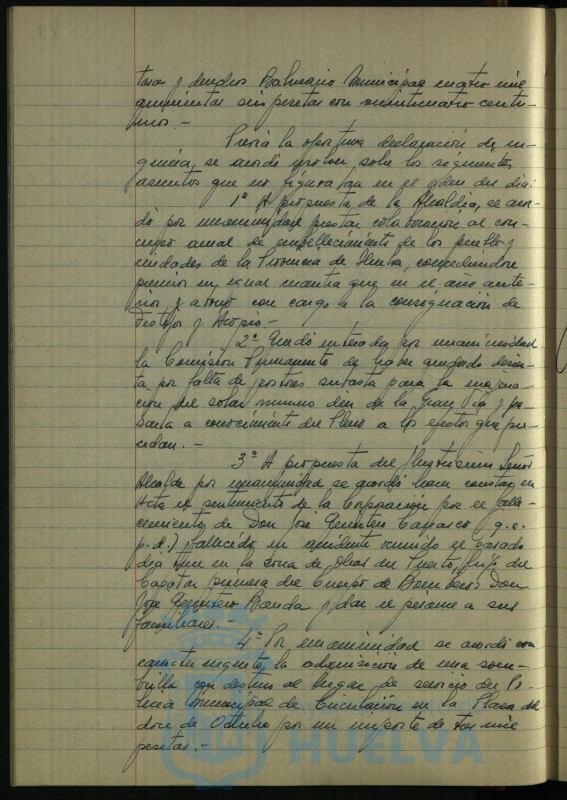 tasas y derechos Balneario Municipal cuatro mil
quinientas seis pesetas con veinticuatro centi-
mos.-
Previa la oportuna declaración de ur-
gencia, se acordó resolver sobre los siguientes
asuntos que no figuraban en el orden del dia:
1º A propuesta de la Alcaldia, se acor-
dó por unanimidad prestar colaboración al con-
curso anual de embellecimiento de los pueblos y
ciudades de la Provincia de Huelva, concediendose
premio en igual cuantia que en el año ante-
rior y abono con cargo a la consignación de
Festejos y
2º Quedó enterada por unanimidad
la Comision Permanente de haber quedado desier-
ta por falta de postores subasta para la enajena-
cion del solar numero diez de la Gran Via y pa-
sarla a conocimiento del Pleno a los efectos que pro-
cedan.-
3º A propuesta del Ilustrisimo Señor
Alcalde por unanimidad se acordó hacer constar en
Acta el sentimiento de la Corporación por el falle-
cimiento de Don José Quintero Carrasco q.e.
p.d.) fallecido en accidente ocurrido el pasado
dia en la zona de Obras del Puerto, hijo del
Capataz primera del Cuerpo de Bomberos Don
José Quintero Banda y dar el pésame a sus
familiares.-
4º Por unanimidad se acordó con
caracter urgente, la adquisición de una som-
brilla con destino al lugar de servicio del Po-
licia Municipal de Circulación en la Plaza del
doce de Octubre por un importe de tres mil
pesetas.-
HUELVA